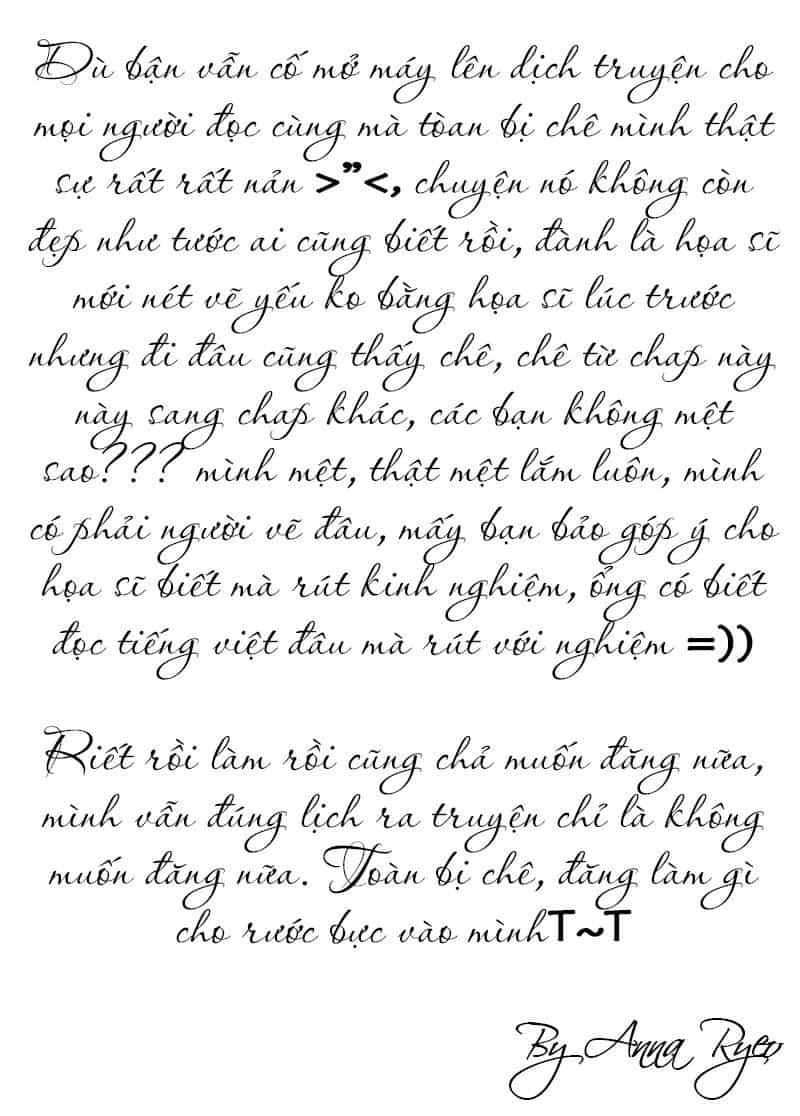 Dù bận vẫn cố mở máy lên dịch truyện cho
mọi người đọc cùng mà tòan bị chê mình thật
sự rất rất nản >"<, chuyện nó không còn
đẹp như tước ai cũng biết rồi, đành là họa sĩ
mới nét vẽ yếu ko bằng họa sĩ lúc trước
nhưng đi đâu cũng thấy chê, chê từ chap này
này sang chap khác, các bạn không mệt
sao??? mình mệt, thật mệt lắm luôn, mình
có phải người vẽ đâu, mấy bạn bảo góp ý cho
họa sĩ biết mà rút kinh nghiệm, ổng có biết
đọc tiếng việt đâu mà rút với nghiệm =))
Riết rồi làm rồi cũng chả muốn đăng nữa,
mình vẫn đúng lịch ra truyện chỉ là không
muốn đăng nữa. Toàn bị chê, đăng làm gì
cho rước bực vào mìnhT~T
By Anna Ryeo